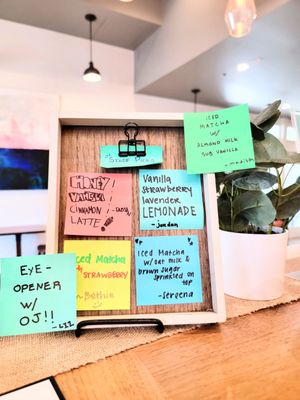 STAFF PICKS
ICED
MATCHA
W/
ALMOND MILK
SUB VANILLA
HONEY
VANILLA
CINNAMON
LATTE
VANILLA
STRAWBERRY
lavender
LEMONADE
- jordan
Iced Matcha
+ STRAWBERRY
- Bethie
ICED MATCHA
w/ oat milk &
brown sugar
sprinkled on
top
- Serena
EYE-
OPENER
W/
OJ!!
- LIZ